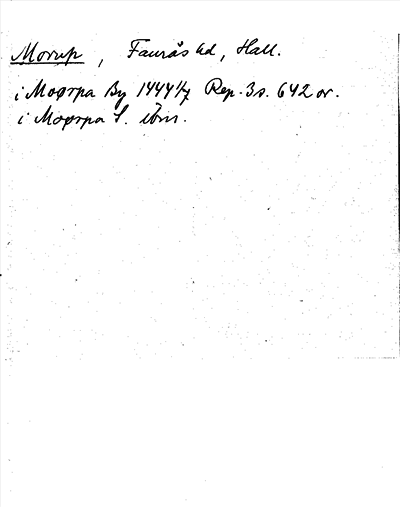 Morup, Faurås hd, Hall.
i Moørpa By 1444 1/7 Rep. 3 s. 642 or.
i Moørpa S. ibm.